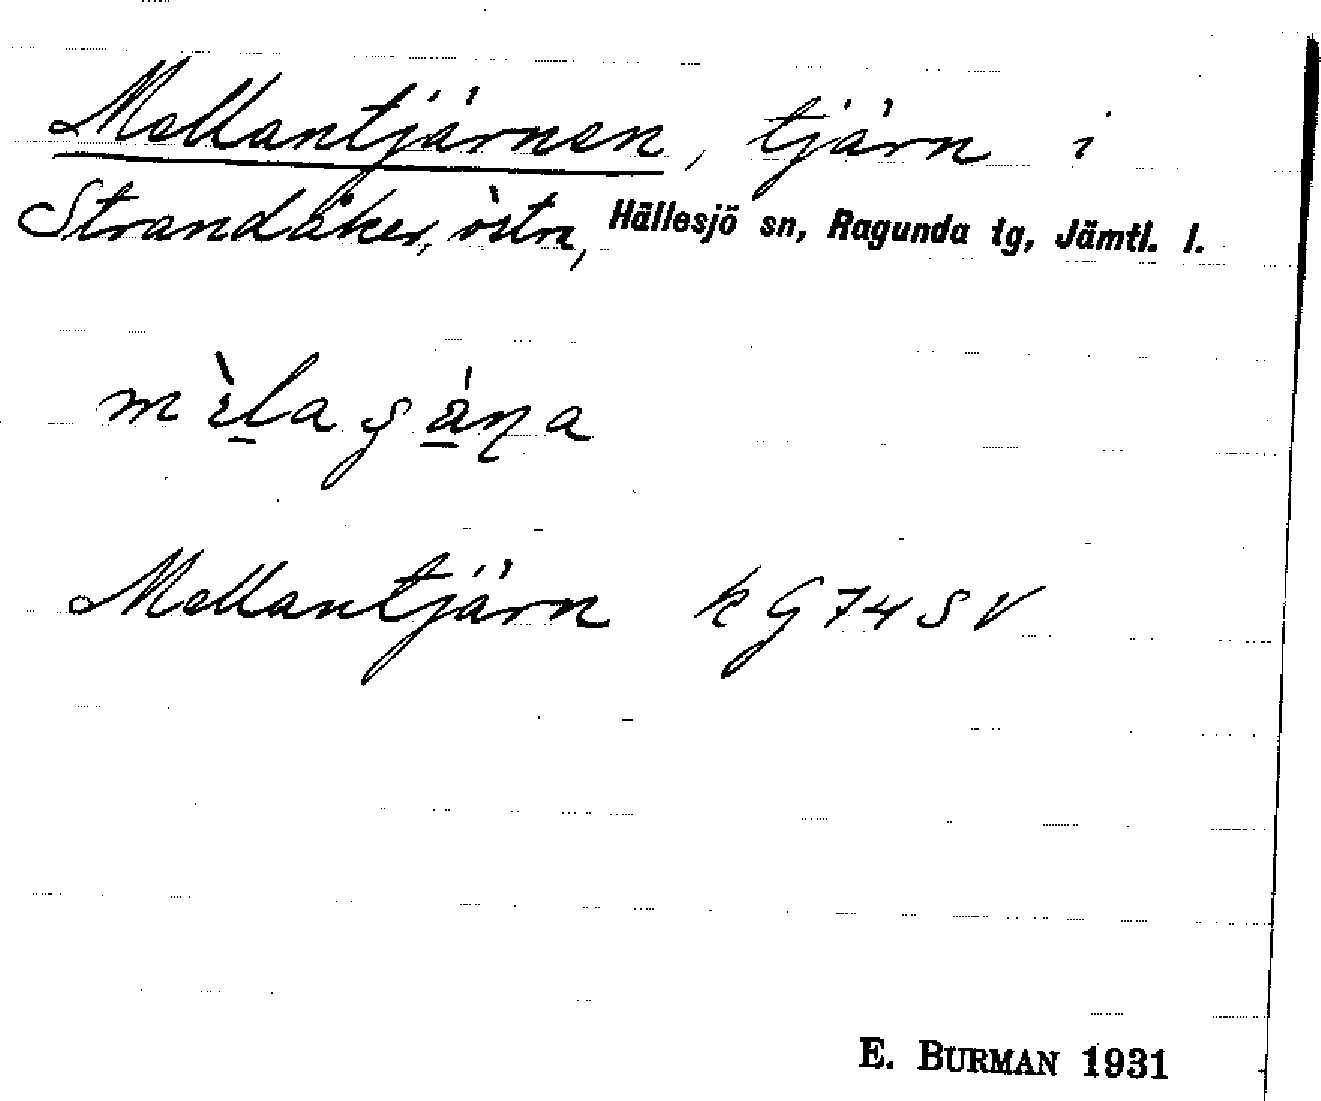 Mellantjärnen, tjärn i
Strandåker, östra, Hällesjö sn, Ragunda tg, Jämtl. l.
Mellantjärn k G74SV
E. BURMAN 1931